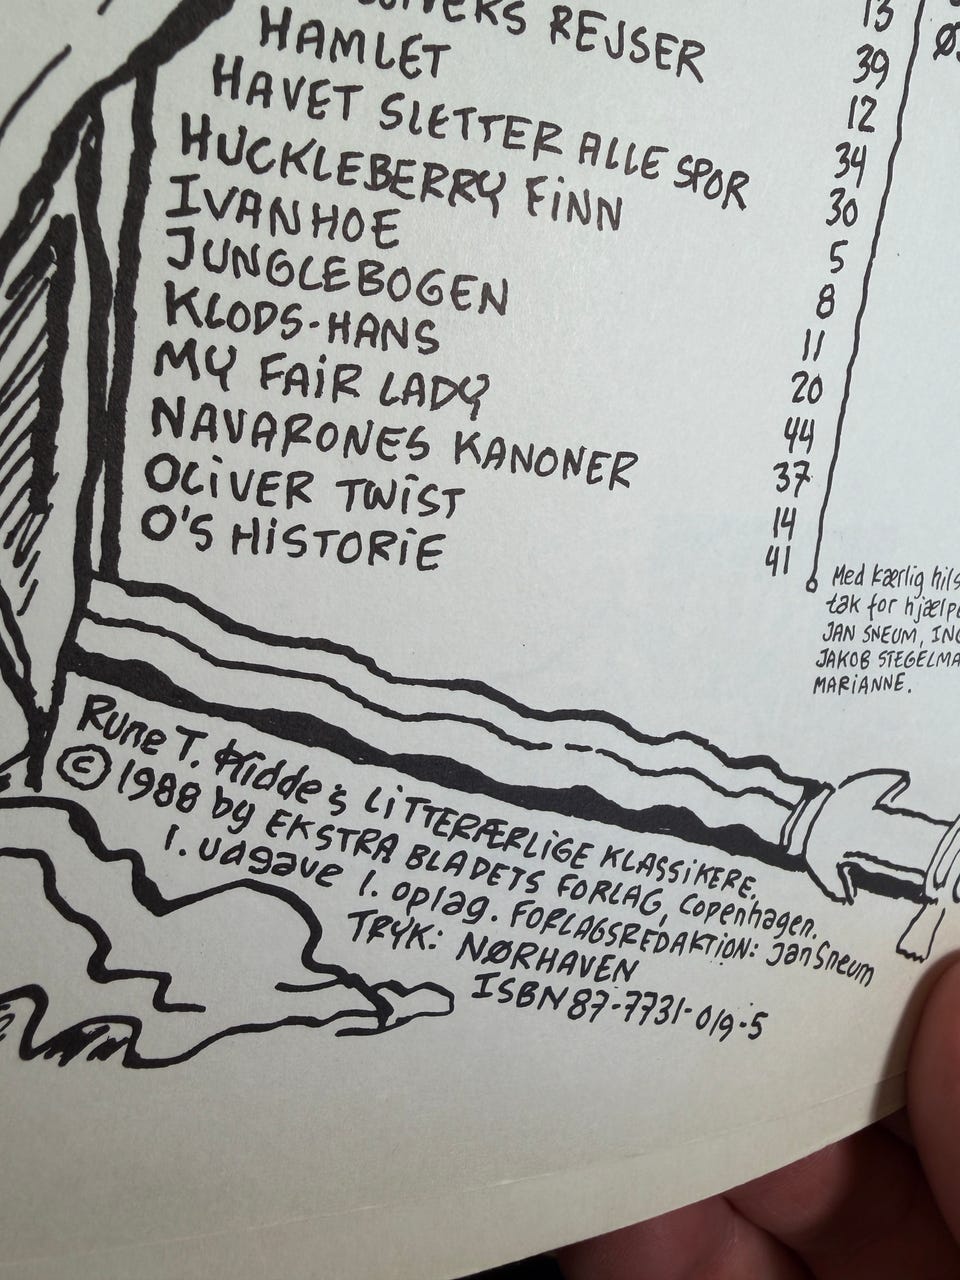 13
39
REJSER 12
HAMLET 34
HAVET SLETTER ALLE SPOR 30
HUCKLEBERRY FINN 5
IVANHOE 8
JUNGLEBOGEN 11
KLODS-HANS 20
MY FAIR LADY 44
NAVARONES KANONER 37
OLIVER TWIST 14
O'S HISTORIE 41
Med kærlig
tak for
JAN SNEUM,
JAKOB
MARIANNE.
Rune T. Kidde's LITTERÆRLIGE KLASSIKERE.
© 1988 by EKSTRA BLADETS FORLAG, Copenhagen.
1. udgave 1. oplag. FORLAGSREDAKTION: Jan Sneum
TRYK: NØRHAVEN
ISBN 87-7731-019-5